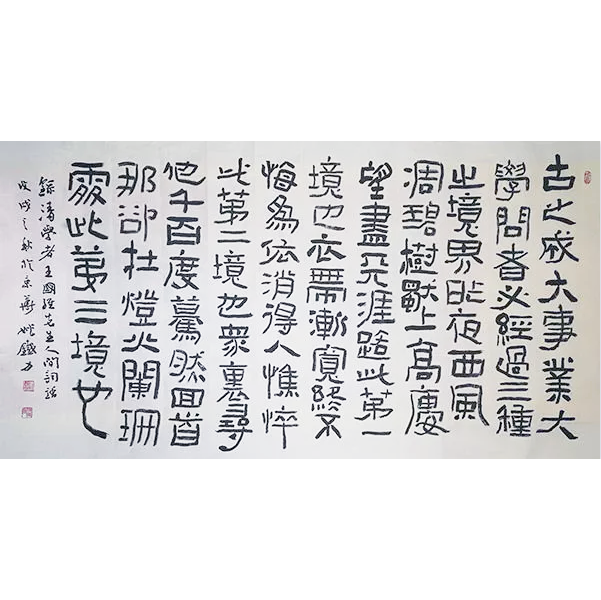 古之成大事業大
學問者必經過三種
之境界昨夜西風
凋碧樹獨上高樓
望盡天涯路此第一
境也衣帶漸寬終不
悔為伊消得人憔悴
此第二境也衆裏尋
他千百度驀然回首
那卻在燈火闌珊
處此第三境也
錄清學者王國維先生人間詞話
戊戌之秋於京華